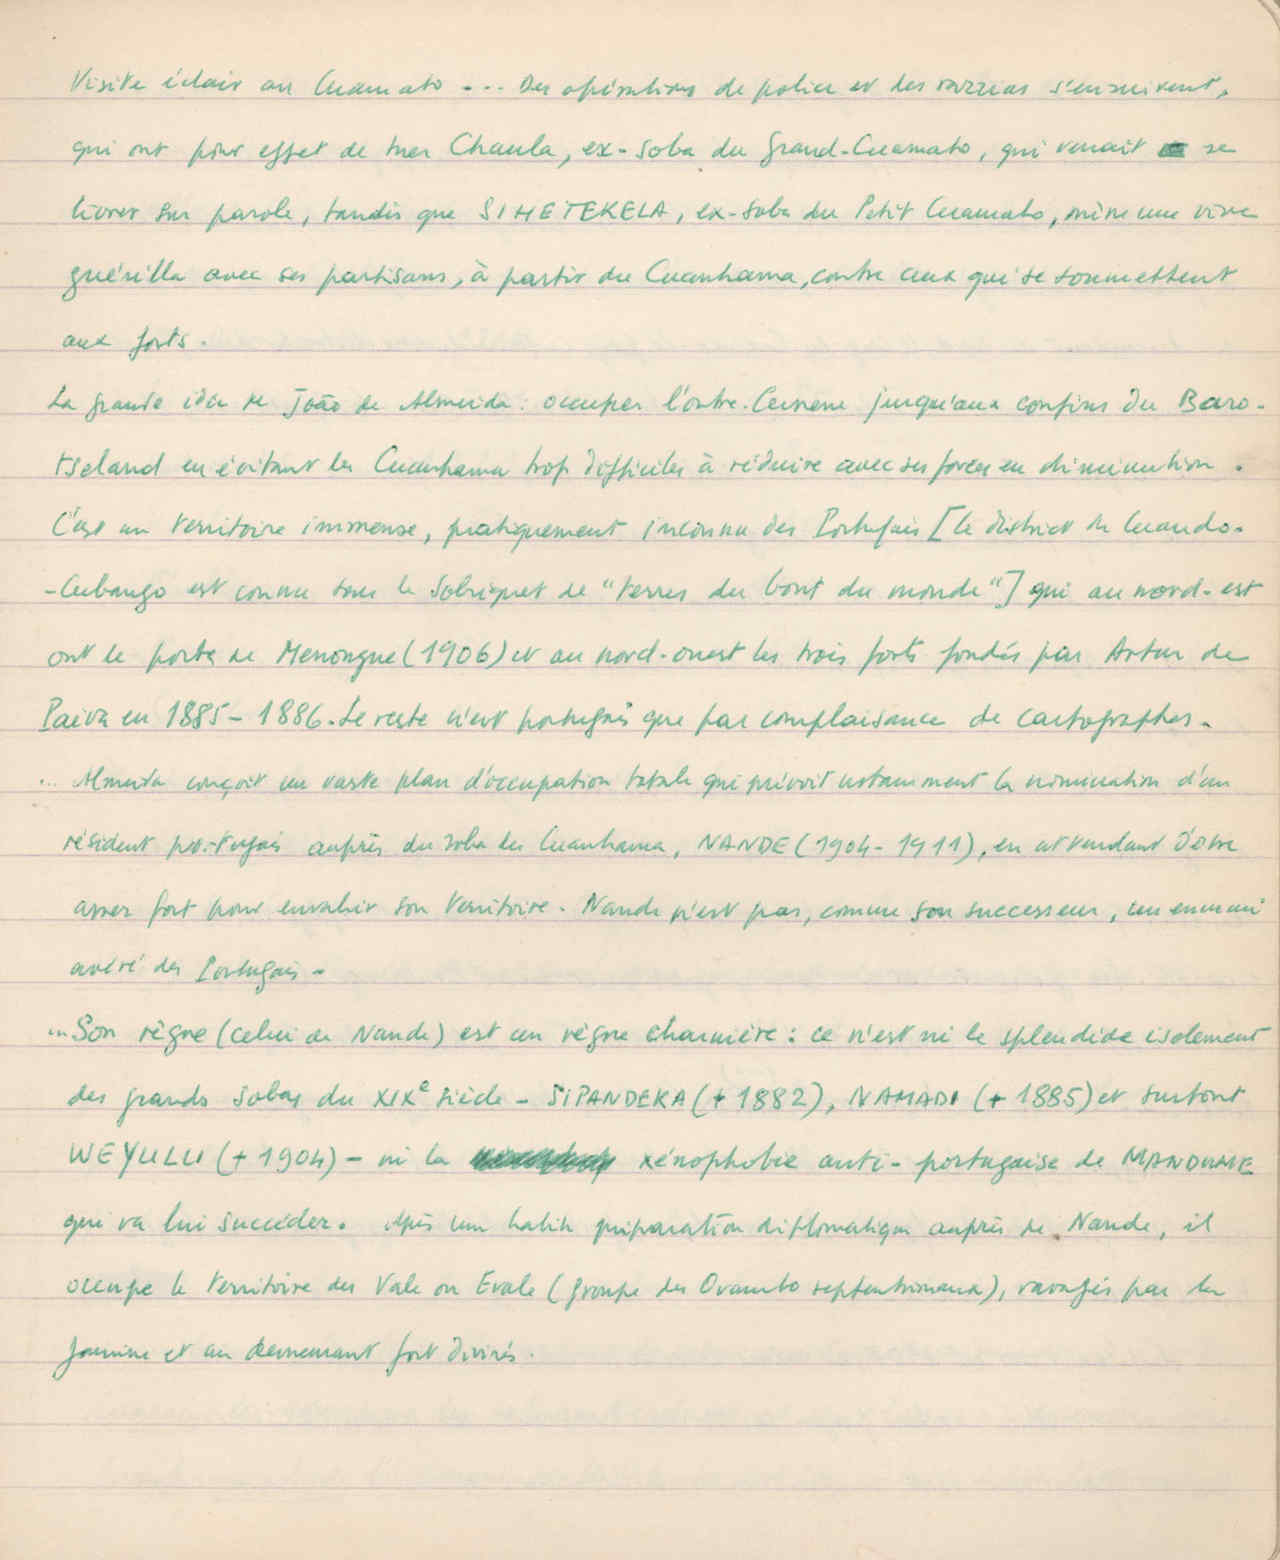 Visite éclair au Cuamato ... Des opérations de police et des razzias s'ensuivent,
qui ont pour effet de tuer Chaula, ex-soba du Grand-Cuamato, qui venait se
livrer sur parole, tandis que SIHETEKELA, ex-soba du Petit Cuamato, mène une vive
guérilla avec ses partisans, à partir du Cuanhama, contre ceux qui se soumettent
aux forts.
La grande idée de João de Almeida : occuper l'outre-Cunene jusqu'aux confins du Baro-
tseland en évitant les Cuanhama trop difficiles à réduire avec ses forces en diminution.
C'est un territoire immense, pratiquement inconnu des Portugais [le district du Cuando-
-Cubango est connu sous le sobriquet de "terres du bout du monde"] qui au nord-est
ont le poste de Menongue (1906) et au nord-ouest les trois forts fondés par Artur de
Paiva en 1885-1886. Le reste n'est portugais que par complaisance de cartographes.
... Almeida conçoit un vaste plan d'occupation totale qui prévoit notamment la nomination d'un
résident portugais auprès du soba des Cuanhama, NANDE (1904-1911), en attendant d'être
assez fort pour envahir son territoire. Nande n'est pas, comme son successeur, un ennemi
avéré des Portugais.
... Son règne (celui de Nande) est un règne charnière : ce n'est ni le splendide isolement
des grands sobas du XIXe siècle - SIPANDEKA (+ 1882), NAMADI (+ 1885) et surtout
WEYULU (+ 1904) - ni la xénophobie anti-portugaise de MANDUME
qui va lui succéder. Après une habile préparation diplomatique auprès de Nande, il
occupe le territoire des Vale ou Evale (groupe des Ovambo septentrionaux), ravagés par la
famine et au demeurant fort divisés.